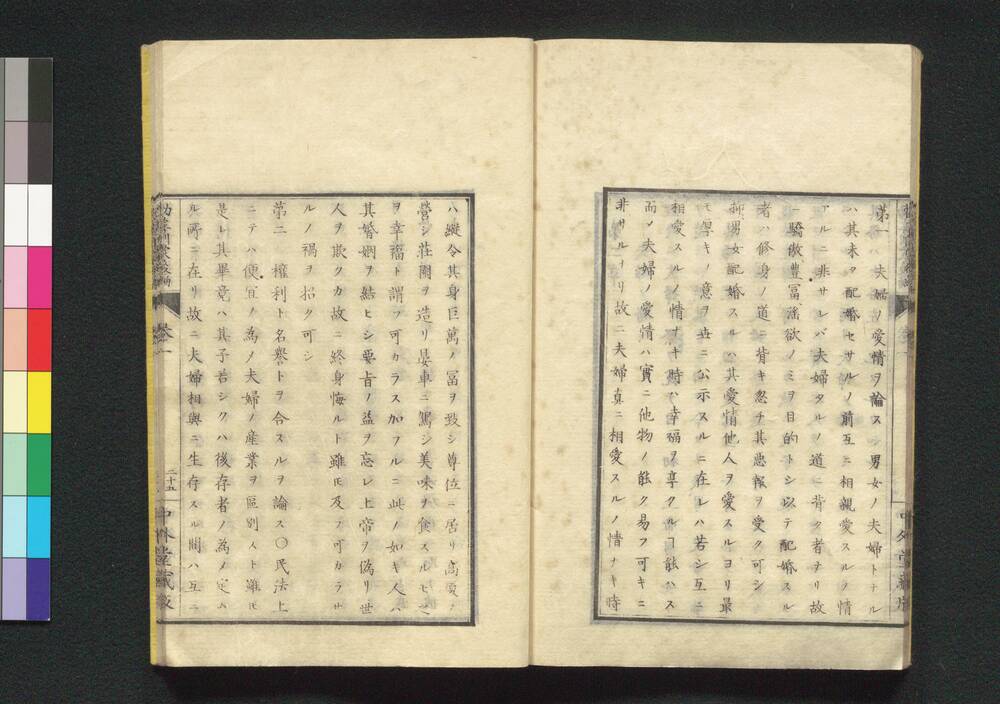 第一 夫婦ノ愛情ヲ論ス〇男女ノ夫婦トナル
ハ其未タ配婚セサルノ前互ニ相親愛スルノ情
アルニ非サレバ夫婦タルノ道ニ背ク者ナリ故
ニ驕傲豊冨滛欲ノミヲ目的トシ以テ配婚スル
者ハ修身ノ道ニ背キ忽チ其悪報ヲ受ク可シ
抑男女配婚スルハ其愛情他人ヲ愛スルヨリ最
モ厚キノ意ヲ世ニ公示スルニ在レハ若シ互ニ
相愛スルノ情ナキ時ハ幸福ヲ享クルヿ能ハス
而ノ夫婦ノ愛情ハ實ニ他物ノ能ク易フ可キニ
非サルナリ故ニ夫婦真ニ相愛スルノ情ナキ時
ハ縱令其身巨萬ノ冨ヲ致シ尊位ニ居リ高廈ヲ
營シ荘園ヲ造リ晏車ニ駕シ美味ヲ食スルモ之
ヲ幸福ト謂フ可カラス加フルニ此ノ如キ人ハ
其婚姻ヲ結ヒシ要旨ノ益ヲ忘レ上帝ヲ偽リ世
人ヲ欺クカ故ニ終身悔ルト雖𪜈及フ可カラサ
ルノ禍ヲ招ク可シ
第二 權利ト名譽トヲ合スルヲ論ス〇民法上
ニテハ便宜ノ為ノ夫婦ノ産業ヲ區別スト雖𪜈
是レ其畢竟ハ其子若シクハ後存者ノ為ノ定ム
ル所ニ在リ故ニ夫婦相與ニ生存スル間ハ互ニ
巻一
二十五
中外堂蔵版